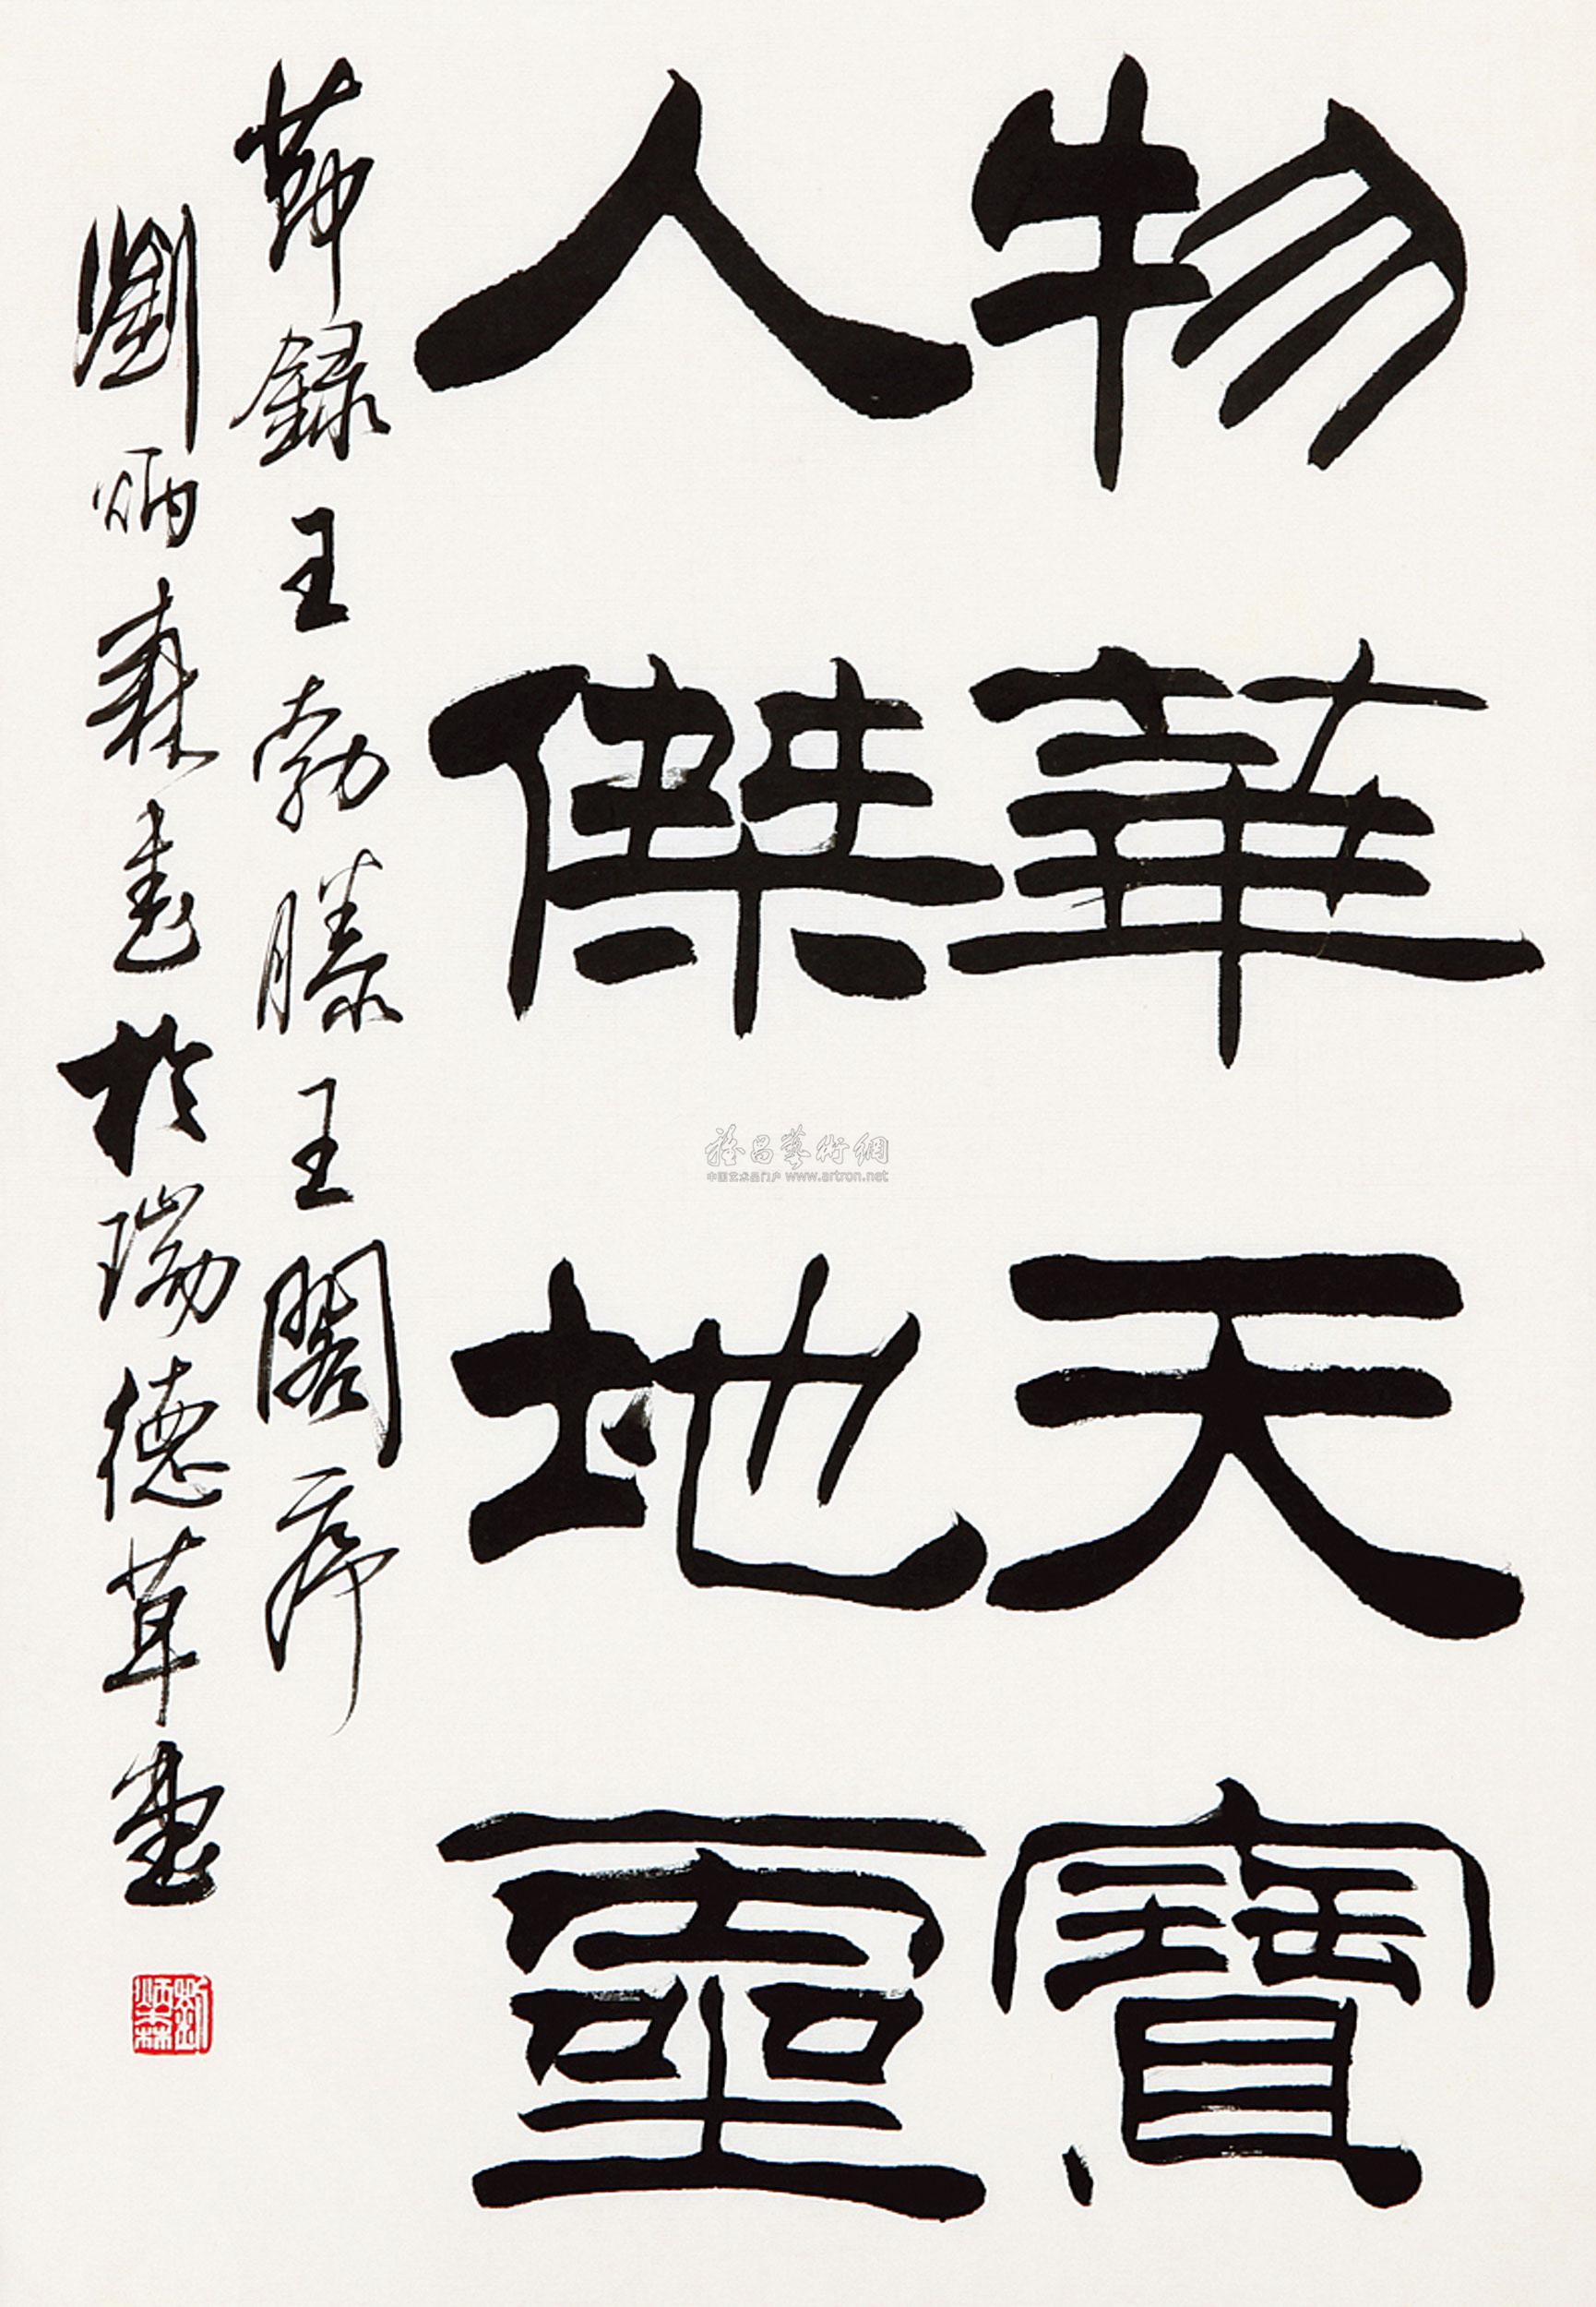 物華天寶
人傑地靈
節録王勃滕王閣序
劉炳森書於瑞德草堂
劉炳森
雅昌藝術網
中国艺术品门户 www.artron.net